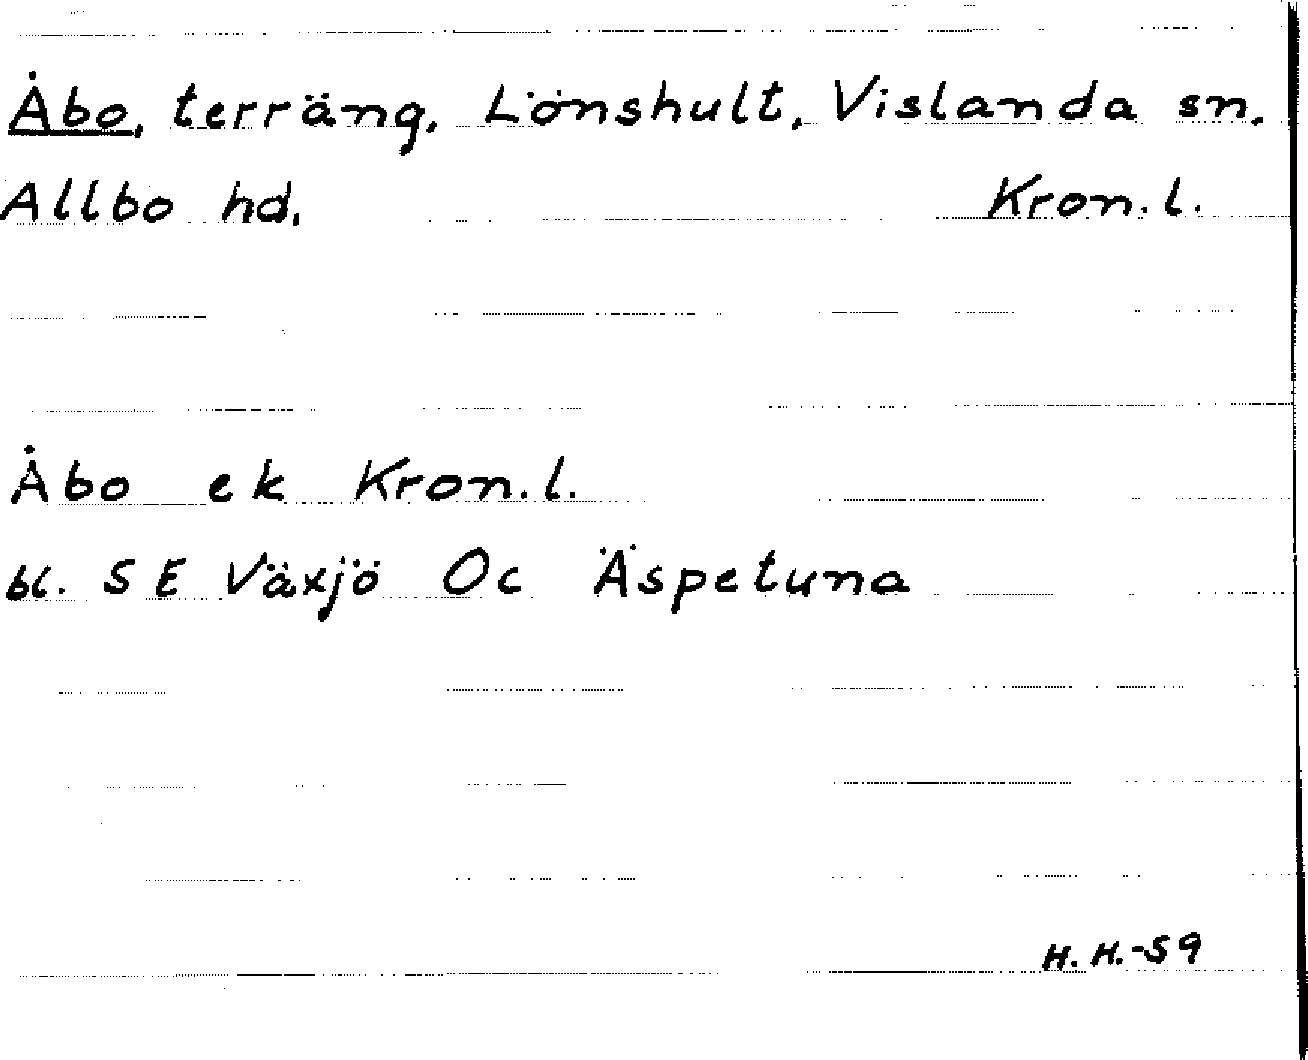 Åbo, terräng, Lönshult, Vislanda sn.
Allbo hd. Kron.l.
Åbo ek Kron.l.
bl. S E Växjö Oc Äspetuna
H.H.-59